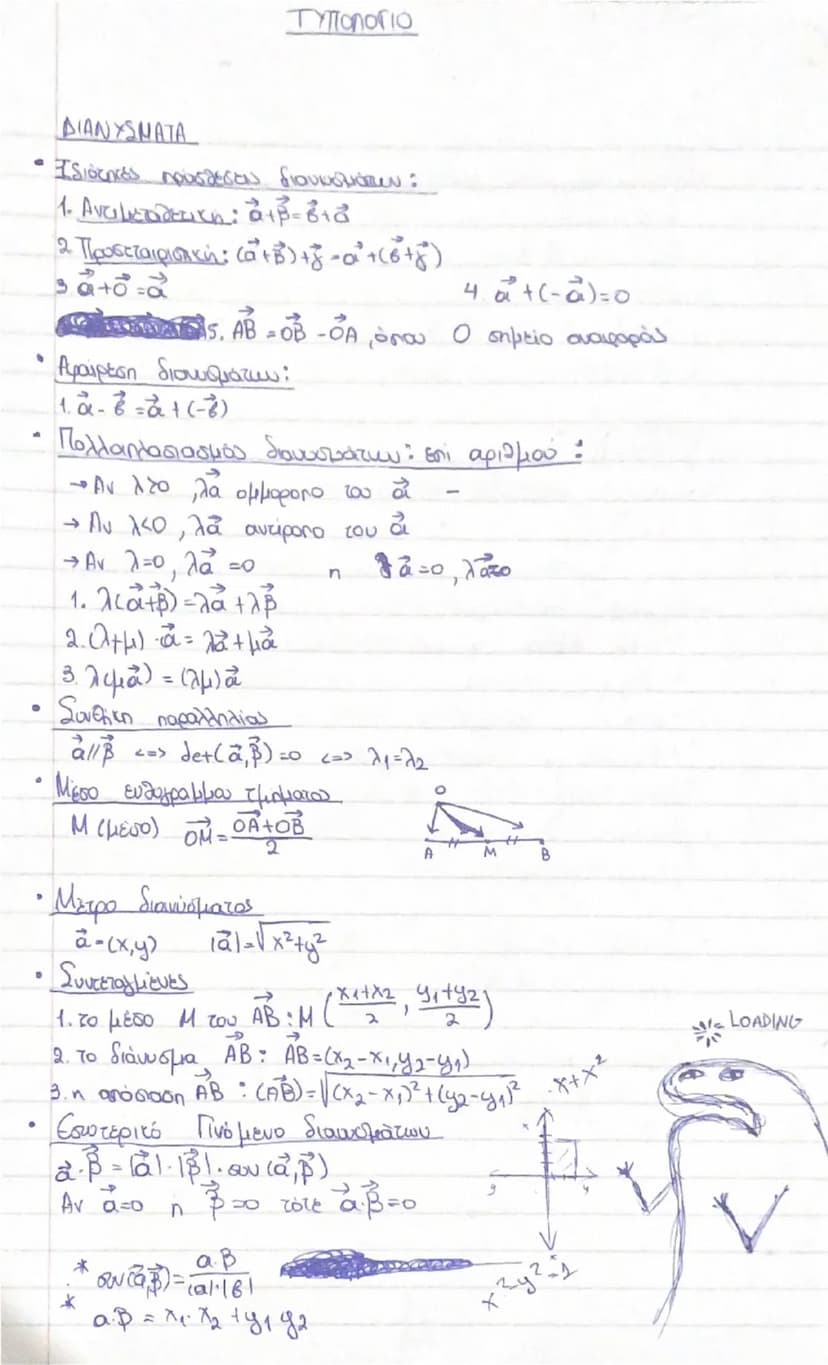 ΤΥΠΟΛΟΓΙΟ
ΔΙΑΝΥΣΜΑΤΑ
• Ιδιότητες πρόσθεσης διανυσμάτων:
1. Αντιμεταθετική: α⃗+β⃗=β⃗+α⃗
2. Προσεταιριστική: (α⃗+β⃗)+γ⃗=α⃗+(β⃗+γ⃗)
3. α⃗+0⃗=α⃗ 4. α⃗+(-α⃗)=0
5. AB⃗=OB⃗-OA⃗, όπου Ο σημείο αναφοράς
• Αφαίρεση διανυσμάτων:
1. α⃗-β⃗=α⃗+(-β⃗)
• Πολλαπλασιασμός διανυσμάτων: επί αριθμού:
→ Αν λ>0, λα⃗ ομμοροπο του α⃗ –
→ Αν λ<0, λα⃗ αντίροπο του α⃗
→ Αν λ=0, λα⃗=0 η α⃗=0, λα⃗=0
1. λ(α⃗+β⃗)=λα⃗+λβ⃗
2. (λ+μ)·α⃗=λα⃗+μα⃗
3. λ(μα⃗)=(λμ)α⃗
• Συνθήκη παραλληλίας
α⃗//β⃗ <=> det(α⃗,β⃗)=0 <=> λ₁=λ₂
• Μέσο ευθύγραμμου τμήματος
Μ (μέσο) OM⃗=(OA⃗+OB⃗)/2
O
A M B
• Μέτρο διανύσματος
α⃗=(x,y) |α⃗|=√(x²+y²)
• Συντεταγμένες
1. το μέσο Μ του AB⃗: M((x₁+x₂)/2, (y₁+y₂)/2)
LOADING
2. το διάνυσμα AB⃗: AB⃗=(x₂-x₁,y₂-y₁)
3. η απόσταση AB⃗: (AB⃗)=√((x₂-x₁)²+(y₂-y₁)²)
x+x²
• Εσωτερικό Γινόμενο διανυσμάτων
α⃗·β⃗=|α⃗|·|β⃗|·συν(α⃗,β⃗)
Αν α⃗=0 ή β⃗=0 τότε α⃗·β⃗=0
* συν(α⃗,β⃗)=α·β/|α|·|β|
x²-y²=1
* α·β=x₁·x₂+y₁y₂